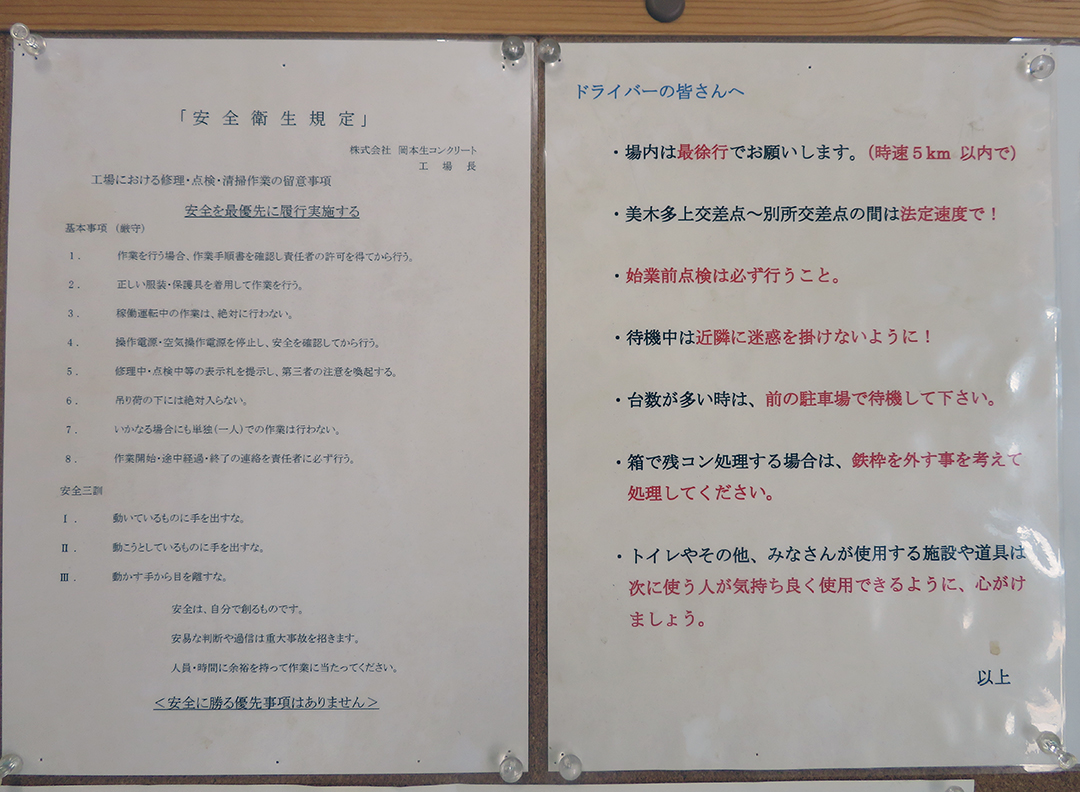 「安全衛生規定」
株式会社 岡本生コンクリート
工場長
工場における修理・点検・清掃作業の留意事項
安全を最優先に履行実施する
基本事項 (厳守)
1. 作業を行う場合、作業手順書を確認し責任者の許可を得てから行う。
2. 正しい服装・保護具を着用して作業を行う。
3. 稼働運転中の作業は、絶対に行わない。
4. 操作電源・空気操作電源を停止し、安全を確認してから行う。
5. 修理中・点検中等の表示札を提示し、第三者の注意を喚起する。
6. 吊り荷の下には絶対入らない。
7. いかなる場合にも単独(一人)での作業は行わない。
8. 作業開始・途中経過・終了の連絡を責任者に必ず行う。
安全三訓
Ⅰ. 動いているものに手を出すな。
Ⅱ. 動こうとしているものに手を出すな。
Ⅲ. 動かす手から目を離すな。
安全は、自分で創るものです。
安易な判断や過信は重大事故を招きます。
人員・時間に余裕を持って作業に当たってください。
＜安全に勝る優先事項はありません＞
ドライバーの皆さんへ
・場内は最徐行でお願いします。(時速５km 以内で)
・美木多上交差点～別所交差点の間は法定速度で！
・始業前点検は必ず行うこと。
・待機中は近隣に迷惑を掛けないように！
・台数が多い時は、前の駐車場で待機して下さい。
・箱で残コン処理する場合は、鉄枠を外す事を考えて
処理してください。
・トイレやその他、みなさんが使用する施設や道具は
次に使う人が気持ち良く使用できるように、心がけ
ましょう。
以上